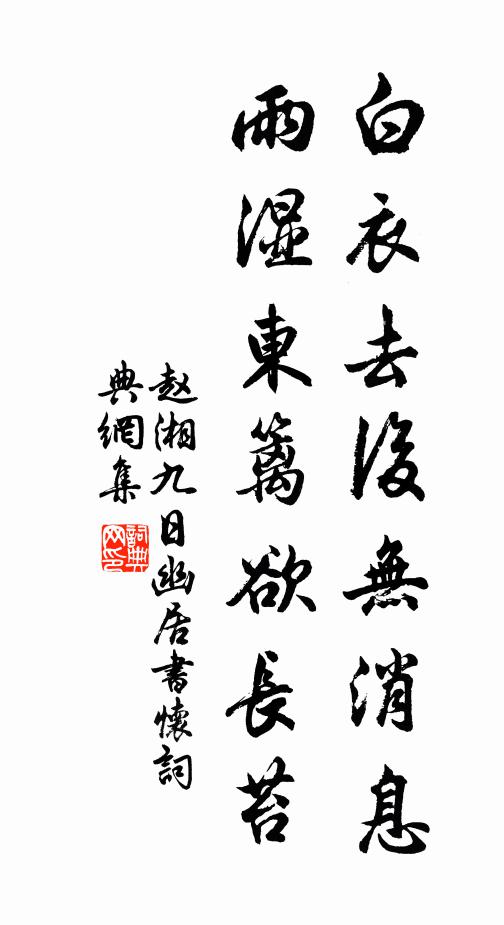 白衣去後無消息
雨濕東籬欲長苔
赵湘九日幽居書懷詞
典網集
詞典网印